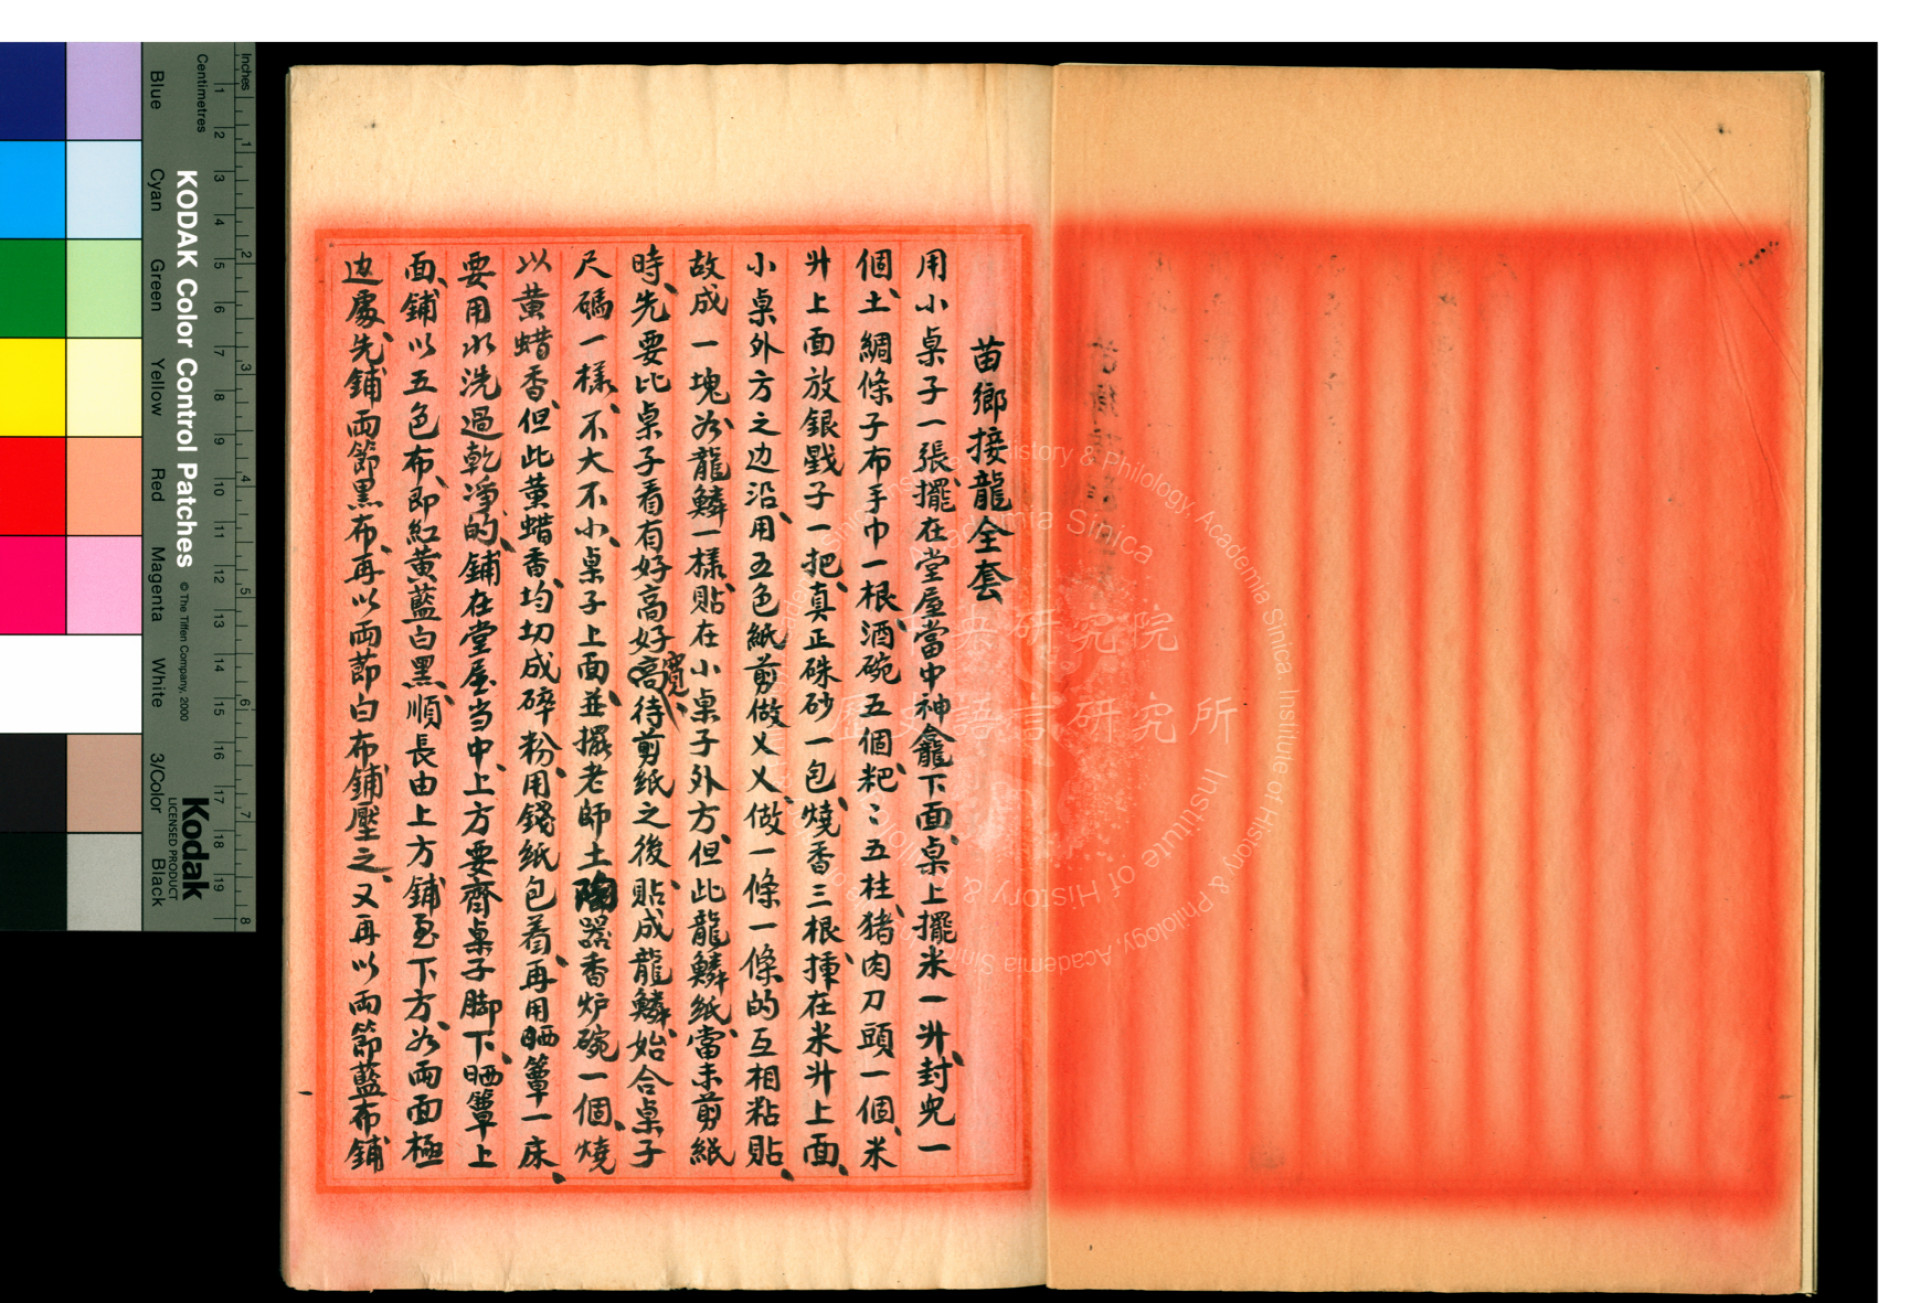 苗鄉接龍全套
用小桌子一張、擺在堂屋當中神龕下面、桌上擺米一升、封兜一
個、土綢條子布手巾一根、酒碗五個、粑〻五柱、猪肉刀頭一個、米
升上面放銀戥子一把、真正硃砂一包、燒香三根、插在米升上面、
小桌外方之边沿、用五色紙剪做乂乂、做一條一條的互相粘貼、
故成一塊、為龍鱗一樣、貼在小桌子外方、但此龍鱗紙、當未剪紙
時、先要比桌子看有好高好寬、待剪紙之後、貼成龍鱗、始合桌子
尺碼一樣、不大不小、桌子上面、並擺老師土陶器香炉碗一個、燒
以黄蜡香、但此黄蜡香、均切成碎粉、用錢紙包着、再用晒簟一床、
要用水洗過乾淨的、鋪在堂屋当中、上方要齊桌子脚下、晒簟上
面、鋪以五色布、即紅黄藍白黑、順長由上方鋪至下方、為兩面極
边處、先鋪兩節黑布、再以兩節白布鋪壓之、又再以兩節藍布鋪
KODAK Color Control Patches
© The Tiffen Company, 2000
Kodak
LICENSED PRODUCT
Inches
Centimetres
Blue
Cyan
Green
Yellow
Red
Magenta
White
3/Color
Black
1 2 3 4 5 6 7 8 9 10 11 12 13 14 15 16 17 18 19
1 2 3 4 5 6 7 8
中央研究院
歷史語言研究所
Institute of History & Philology, Academia Sinica